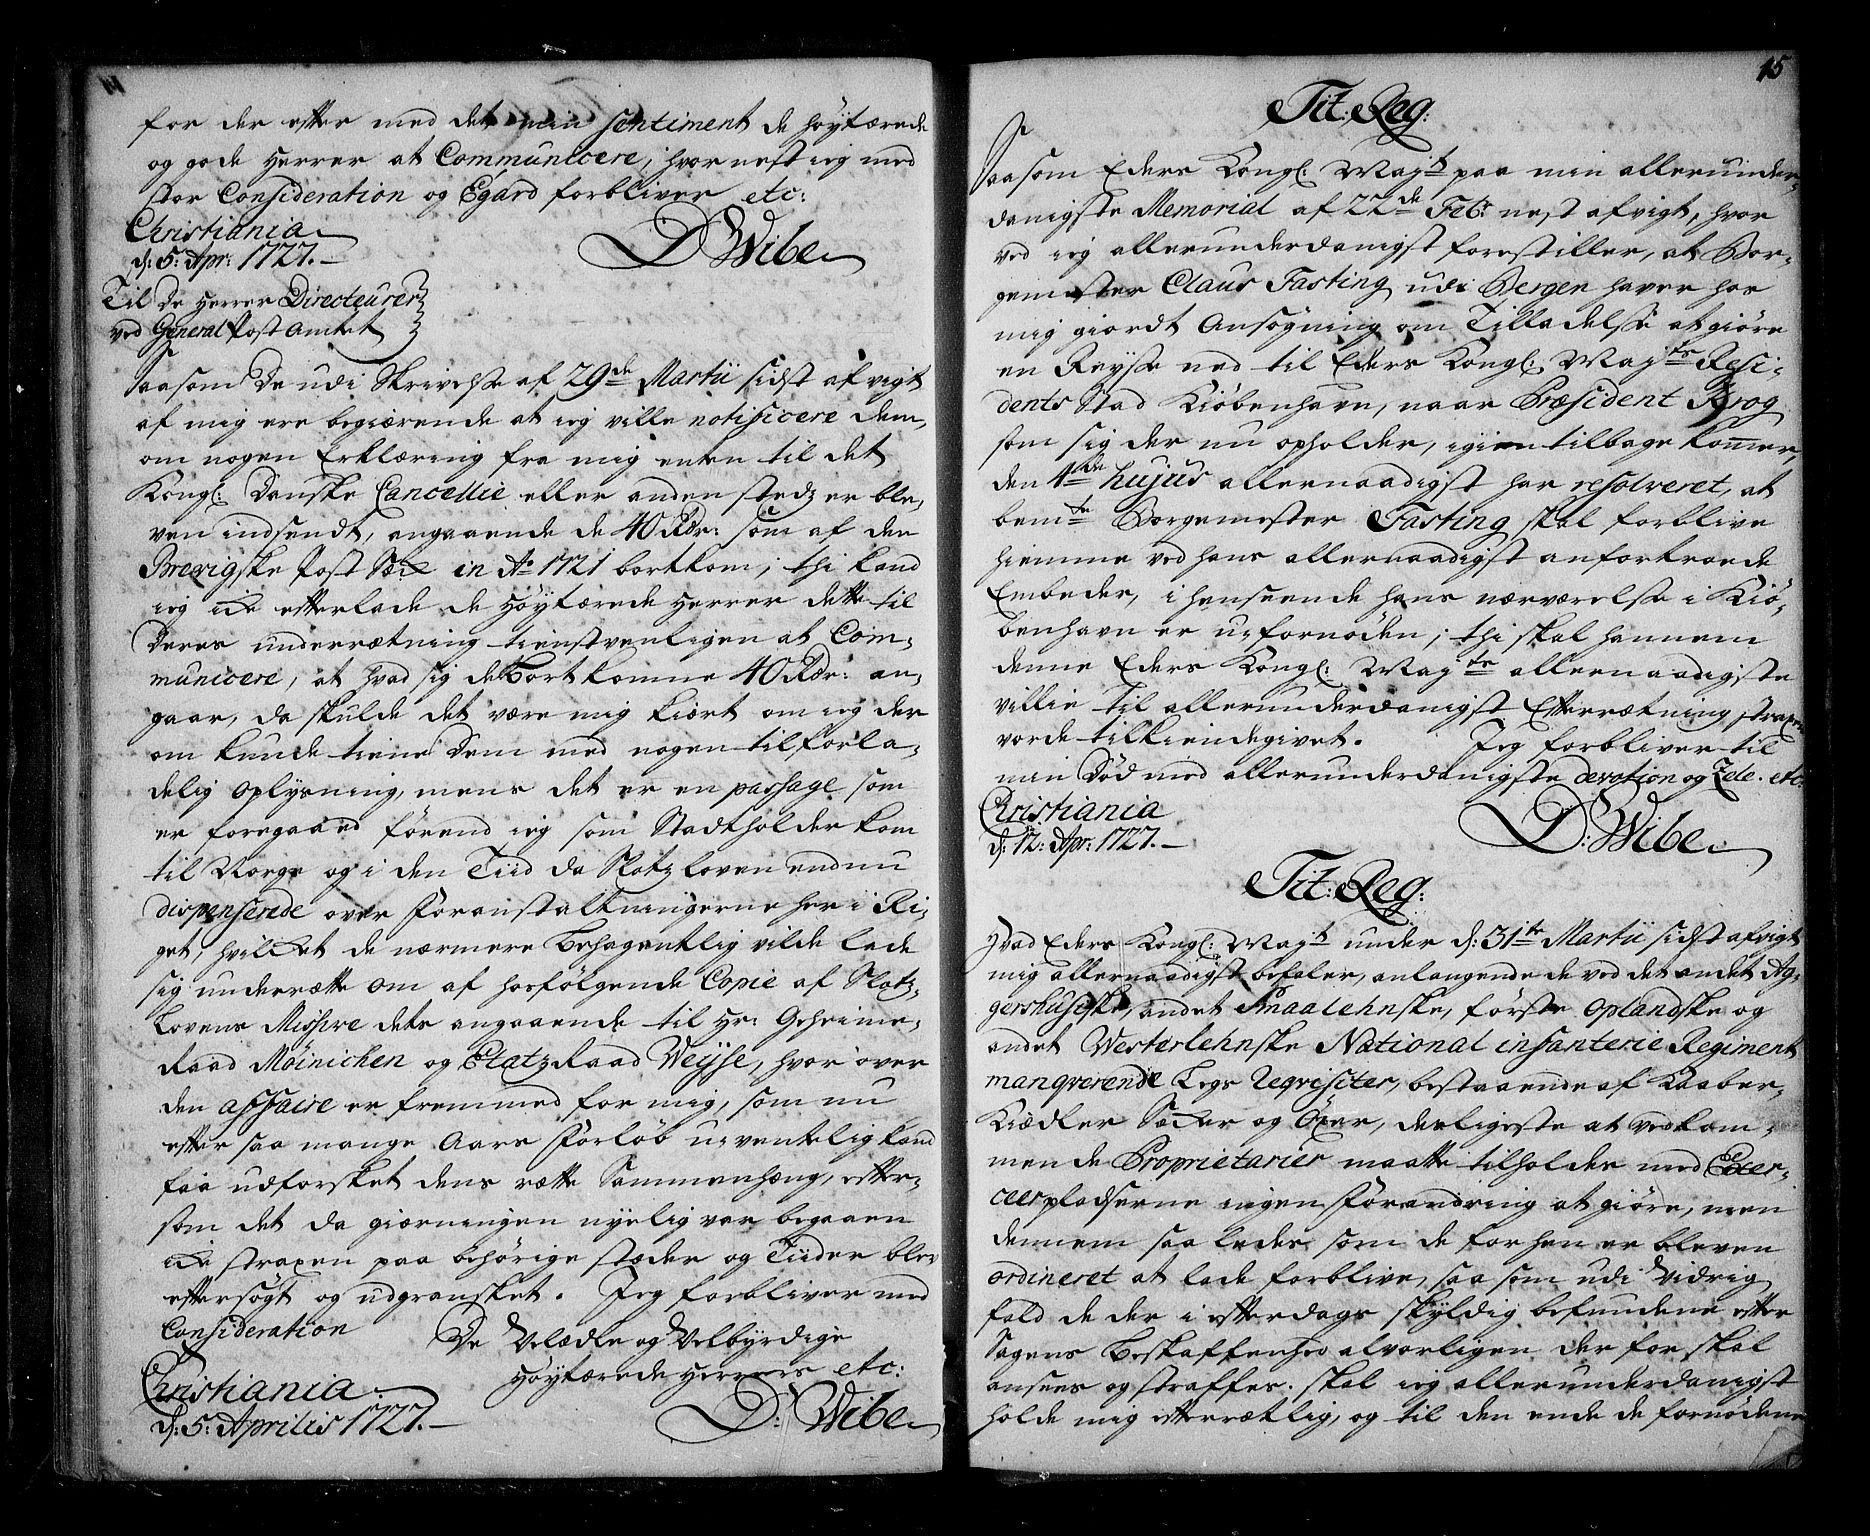 for der efter med det min sentiment de høytærede
og gode Herrer at Communicere, hvornest ieg med
stor Consideration og Egard forbliver etc:
Christiania
d: 5: Apr: 1727.
D Wibe
Til De Herrer Directeurer
ved General Post Amtet
Saasom De udi Skrivelse af 29de Martii sidst afvigt
af mig ere begiærende at ieg ville notificere dem,
om nogen Erklæring fra mig enten til det
Kongl: Danske Cancellie eller anden stedz er ble-
ven indsendt, angaaende de 40 Rdr: som af den
Brevigske Post Sæk in Ao 1721 bortkom; thi kand
ieg icke efterlade de Høytærede Herrer dette til
Deres underrætning tienstvenligen at Com-
municere, at hvad sig de bortkomne 40 Rdr: an-
gaar, da skulde det være mig kiært om ieg der
om kunde tiene Dem med nogen tilforla-
delig oplysning, mens det er en passage som
er foregaaed førend ieg som Stadtholder kom
til Norge og i den Tiid da Slotzloven endnu
dispenserede over Foranstaltningerne her i Ri-
get, hvilcket de nærmere behagentlig vilde lade
sig underrætte om af hosfølgende Copie af Slotz-
Lovens Missive dets angaaende til Hr: Geheime-
Raad Møinichen og Etatz Raad Weyse, hvor over
den affaire er fremmed for mig, som nu
efter saa mange Aars Forløb uventelig kand
faa udforsket dens rætte Sammenhæng, efter-
som det da giærningen nyelig var begaaen
icke straxen paa behørige stæder og Tiider blev
eftersøgt og udgransket. Jeg forbliver med
Consideration
De Velædle og Velbyrdige
Høytærede Herrers etc:
Christiania
d: 5: Aprilis 1727.
D: Wibe
15
Tit: Reg:
Saasom Eders Kongl: Mayt paa min allerunder-
danigste Memorial af 22de Febr nest afvigt, hvor
ved ieg allerunderdanigst forestiller, at Bor-
gemester Claus Fasting udi Bergen haver hos
mig giordt Ansøgning om Tilladelse at giøre
en Reyse ned til Eders Kongl: Mayts Resi-
dents Stad Kiøbenhavn, naar Præsident Krog
som sig der nu opholder, igien tilbage kommer,
den 1de hujus allernaadigst har resolveret, at
bemte Borgemester Fasting skal forblive
hiemme ved hans allernaadigst anfortroede
Embeder, i henseende hans nærværelse i Kiø-
benhavn er ufornøden; thi skal hannem
denne Eders Kongl: Mayts allernaadigste
villie til allerunderdanigst Efterrætning straxen
vorde tilkiendegivet. Jeg forbliver til
min Død med allerunderdanigste devotion og Zele. etc:
Christiania
d: 12: Apr: 1727.
D: Wibe
Tit: Reg:
Hvad Eders Kongl: Mayt under d: 31te Martii sidst afvigt
mig allernaadigst befaler, anlangende de ved det andet Ag-
gershusiske, andet Smaalehnske, første Oplandske og
andet Westerlehnske National infanterie Regiment
manqverende Legs Reqvisiter, bestaaende af Kaaber-
Kiedler Sæcker og Øxer, desligeste at vedkom-
mende Proprietarier maatte tilholdes med Exer-
ceerpladserne ingen Forandring at giøre, men
dennem saaledes som de forhen er bleven
ordineret at lade forblive, saa som udi Vidrig
fald de der i efterdags skyldig befundene efter
Sagens beskaffenhed alvorligen derfor skal
ansees og straffes. skal ieg allerunderdanigst
holde mig efterrætlig, og til den ende de fornødene